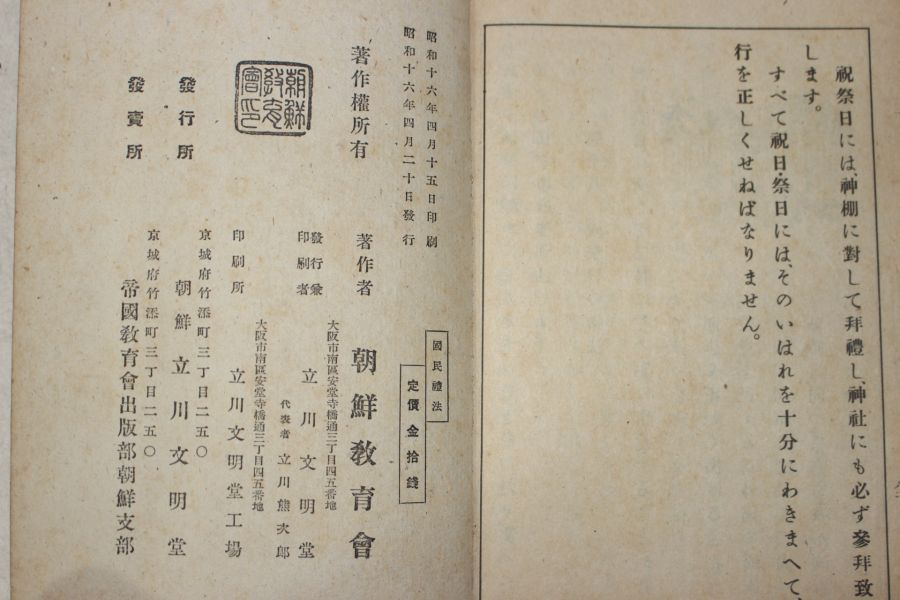 祝祭日には、神棚に對して拜禮し、神社にも必ず參拜致
します。
すべて祝日・祭日には、そのいはれを十分にわきまへて、
行を正しくせねばなりません。
國民禮法
定價金拾錢
昭和十六年四月十五日印刷
昭和十六年四月二十日發行
著作權所有
著作者 朝鮮敎育會
大阪市南區安堂寺橋通三丁目四五番地
發行兼
印刷者 立川文明堂
代表者 立川熊次郎
大阪市南區安堂寺橋通三丁目四五番地
印刷所 立川文明堂工場
京城府竹添町三丁目二五〇
發行所 朝鮮立川文明堂
京城府竹添町三丁目二五〇
發賣所 帝國敎育會出版部朝鮮支部
朝鮮
敎育
會印